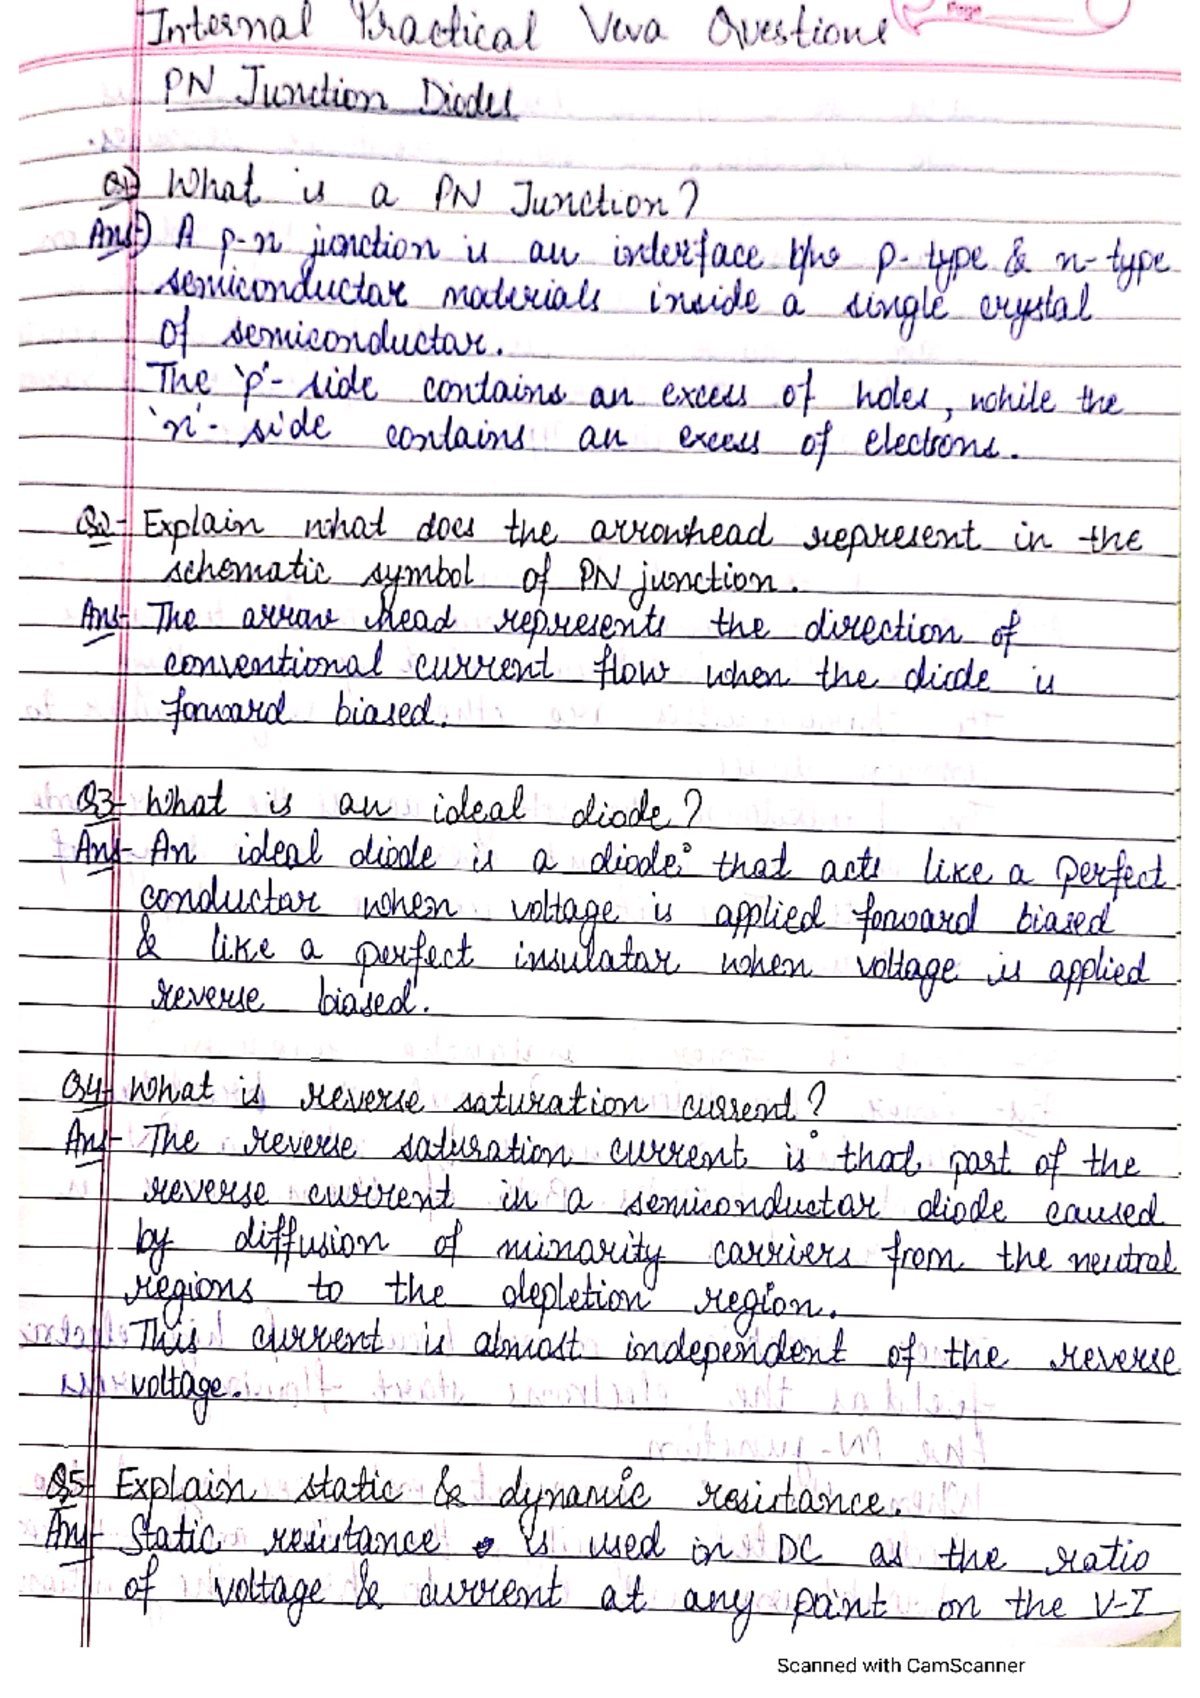 Internal Practical Viva Questions
Page
PN Junction Diodes
Q1) What is a PN Junction?
Ans) A p-n junction is an interface b/w p-type & n-type
semiconductor materials inside a single crystal
of semiconductor.
The 'p'- side contains an excess of holes, while the
'n'- side contains an excess of electrons.
Q2- Explain what does the arrowhead represent in the
schematic symbol of PN junction.
Ans- The arrow head represents the direction of
conventional current flow when the diode is
forward biased.
Q3- What is an ideal diode?
Ans- An ideal diode is a diode that acts like a perfect
conductor when voltage is applied forward biased
& like a perfect insulator when voltage is applied
reverse biased.
Q4- What is reverse saturation current?
Ans- The reverse saturation current is that part of the
reverse current in a semiconductor diode caused
by diffusion of minority carriers from the neutral
regions to the depletion region.
This current is almost independent of the reverse
voltage.
Q5- Explain static & dynamic resistance.
Ans- Static resistance is used in DC as the ratio
of voltage & current at any point on the V-I
Scanned with CamScanner